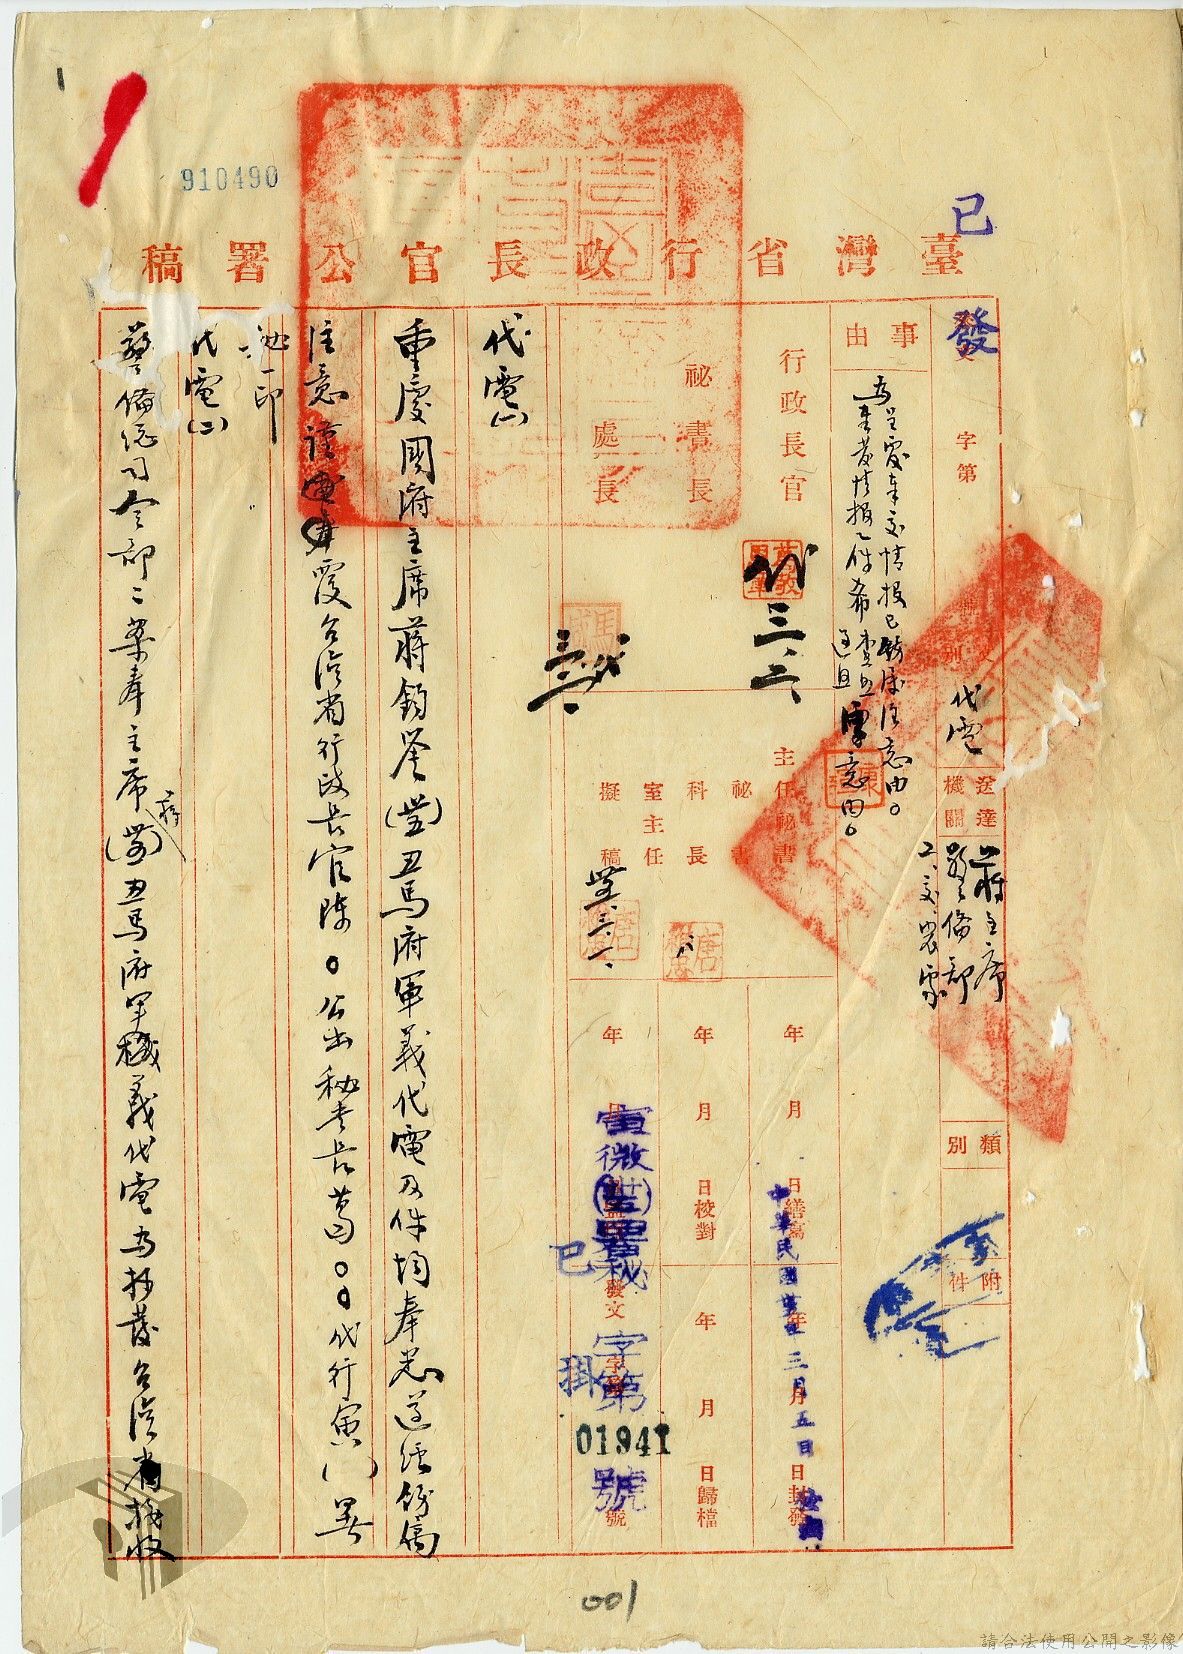 910490
已
臺灣省行政長官公署稿
發
字第
代電
送達機關
蔣主席
警備部
工、交、農處
類別
附件
事由
為呈覆奉交情報已飭屬注意由。
行政長官
代
三、二、
秘書長
處長
主任秘書
秘書
科長
室主任
擬稿
年 月 日繕寫
年 月 日校對
年 月 日封發
年 月 日歸檔
中華民國卅五年三月五日
發文 字第 號
寅微(卅五)署秘
字第
01941
號
已掛
代電(一)
重慶國府主席蔣鈞鑒(卅五)丑馬府軍義代電及件均奉悉遵經飭屬
注意謹電奉覆台灣省行政長官陳○公出秘書長葛○○代行寅( )署
秘印
代電(二)
警備總司令部:案奉主席蔣(卅五)丑馬府軍義代電為抄發台灣省接收
001
請合法使用公開之影像